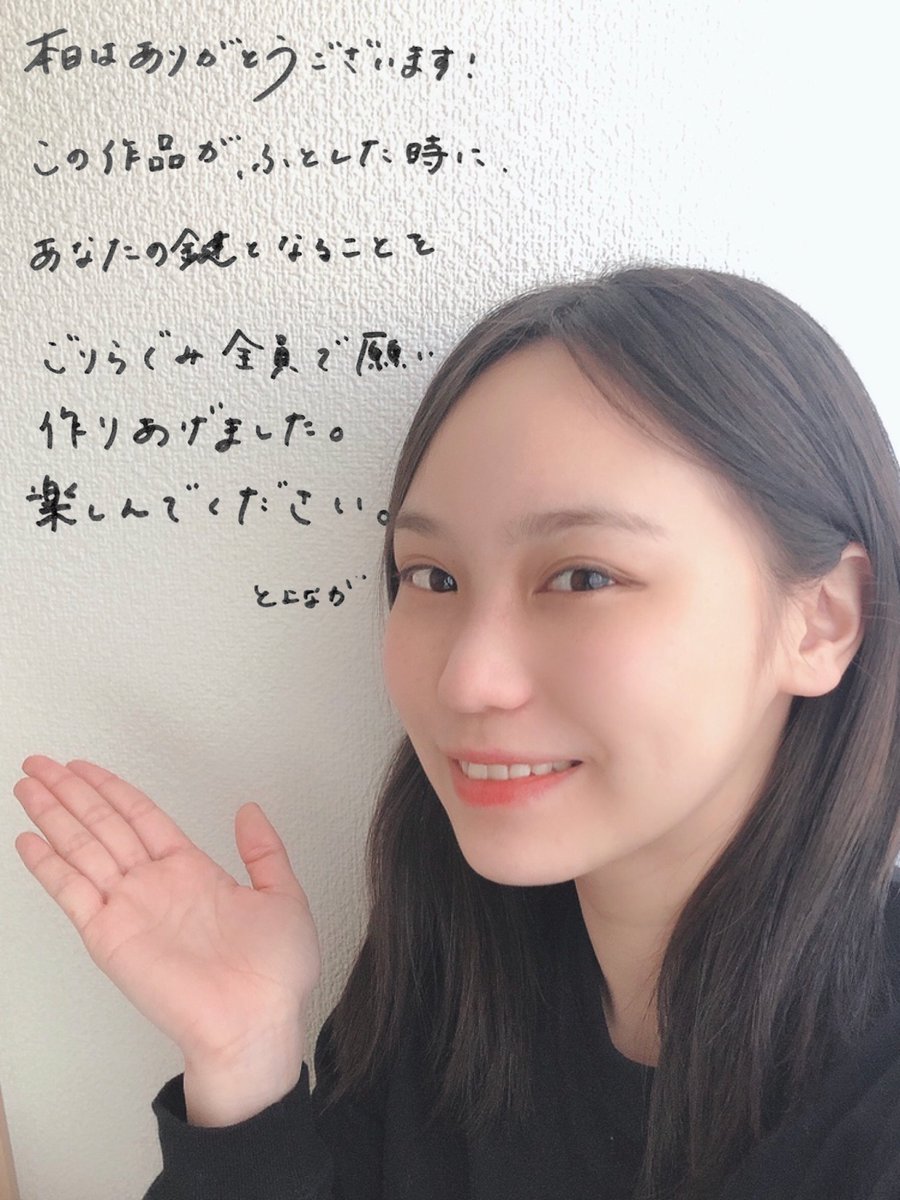 本日はありがとうございます!
この作品が、ふとした時に、
あなたの鍵となることを
ごりらぐみ全員で願い
作りあげました。
楽しんでください。
とよなが